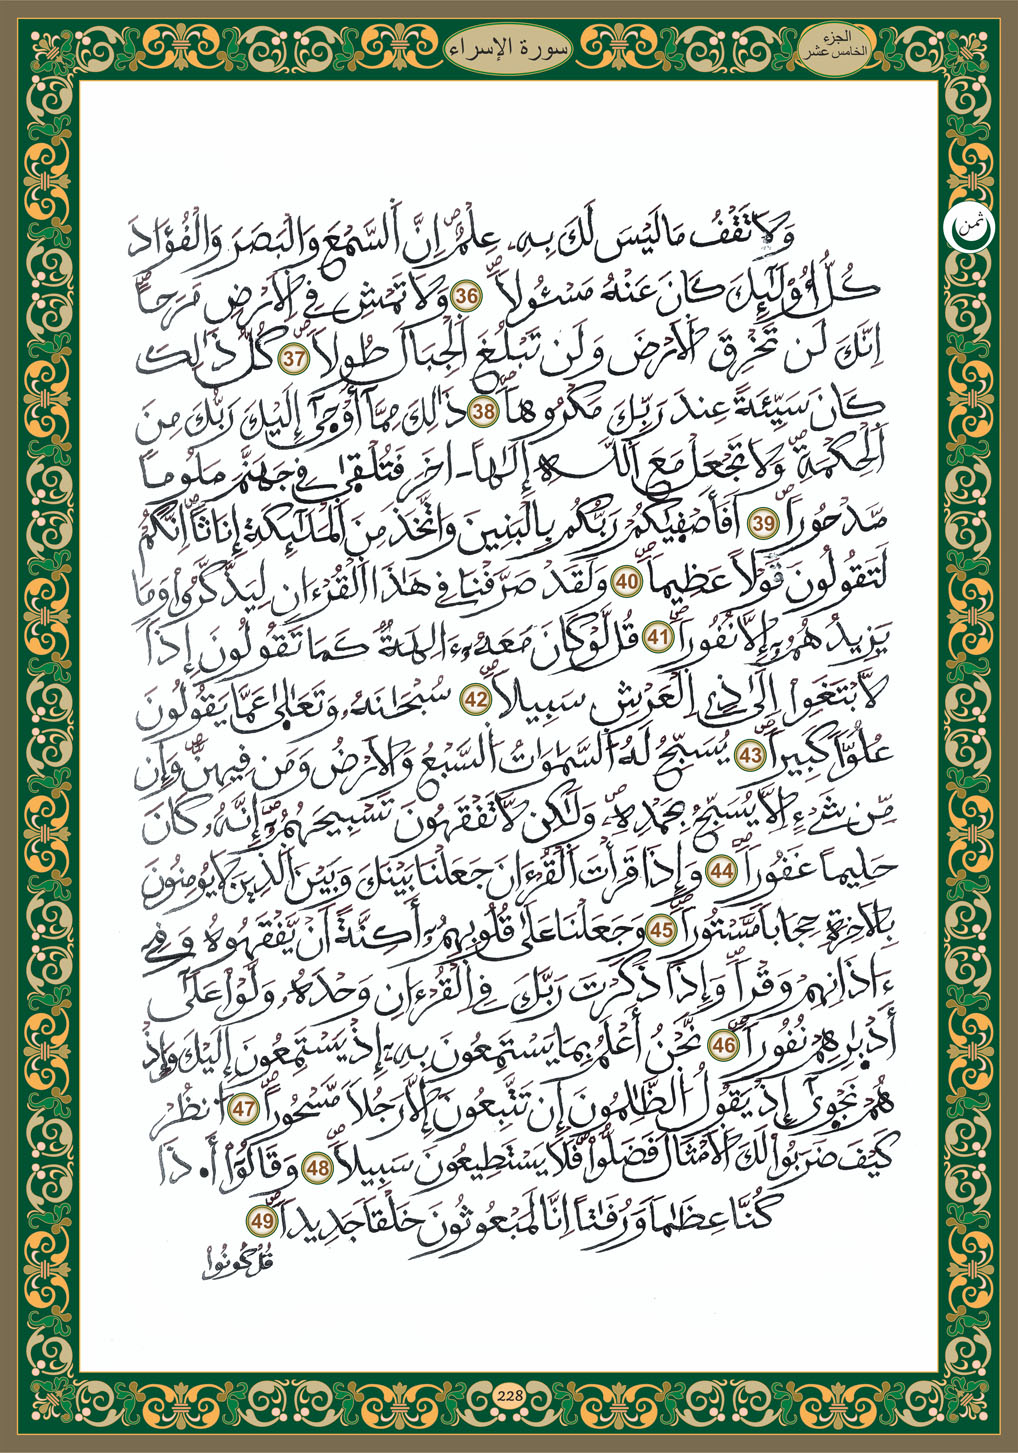 الجزء
الخامس عشر
سورة الإسراء
ثمن
وَلَا تَقْفُ مَا لَيْسَ لَكَ بِهِۦ عِلْمٌ اِنَّ اَلسَّمْعَ وَالْبَصَرَ وَالْفُؤَادَ
كُلُّ أُوْلَٰٓئِكَ كَانَ عَنْهُ مَسْـُٔولاً 36 وَلَا تَمْشِ فِے اِلَارْضِ مَرَحاً
اِنَّكَ لَن تَخْرِقَ اَلَارْضَ وَلَن تَبْلُغَ اَلْجِبَالَ طُولاً 37 كُلُّ ذَٰلِكَ
كَانَ سَيِّئَةً عِندَ رَبِّكَ مَكْرُوهاً 38 ذَٰلِكَ مِمَّآ أَوْحَىٰٓ إِلَيْكَ رَبُّكَ مِنَ
اَلْحِكْمَةِ وَلَا تَجْعَلْ مَعَ اَللَّهِ إِلَٰهاً ـ اخَرَ فَتُلْقَىٰ فِے جَهَنَّمَ مَلُوماً
مَّدْحُوراً 39 اَفَأَصْفَيٰكُمْ رَبُّكُم بِالْبَنِينَ وَاتَّخَذَ مِنَ اَلْمَلَٰٓئِكَةِ إِنَٰثاً اِنَّكُمْ
لَتَقُولُونَ قَوْلاً عَظِيماً 40 وَلَقَدْ صَرَّفْنَا فِے هَٰذَا اَلْقُرْءَانِ لِيَذَّكَّرُواْ وَمَا
يَزِيدُهُمُۥٓ إِلَّا نُفُوراً 41 قُل لَّوْ كَانَ مَعَهُۥٓ ءَالِهَةٌ كَمَا تَقُولُونَ إِذاً
لَّابْتَغَوِاْ اِلَىٰ ذِے اِلْعَرْشِ سَبِيلاً 42 سُبْحَٰنَهُۥ وَتَعَٰلَىٰ عَمَّا يَقُولُونَ
عُلُوّاً كَبِيراً 43 يُسَبِّحُ لَهُ اُلسَّمَٰوَٰتُ اُلسَّبْعُ وَالَارْضُ وَمَن فِيهِنَّ وَإِن
مِّن شَےْءٍ اِلَّا يُسَبِّحُ بِحَمْدِهِۦ وَلَٰكِن لَّا تَفْقَهُونَ تَسْبِيحَهُمُۥٓ إِنَّهُۥ كَانَ
حَلِيماً غَفُوراً 44 وَإِذَا قَرَأْتَ اَلْقُرْءَانَ جَعَلْنَا بَيْنَكَ وَبَيْنَ اَلذِينَ لَا يُومِنُونَ
بِالَاخِرَةِ حِجَاباً مَّسْتُوراً 45 وَجَعَلْنَا عَلَىٰ قُلُوبِهِمُۥٓ أَكِنَّةً اَنْ يَّفْقَهُوهُ وَفِےٓ
ءَاذَانِهِمْ وَقْراً وَإِذَا ذَكَرْتَ رَبَّكَ فِے اِلْقُرْءَانِ وَحْدَهُۥ وَلَّوْاْ عَلَىٰٓ
أَدْبَٰرِهِمْ نُفُوراً 46 نَّحْنُ أَعْلَمُ بِمَا يَسْتَمِعُونَ بِهِۦٓ إِذْ يَسْتَمِعُونَ إِلَيْكَ وَإِذْ
هُمْ نَجْوَىٰٓ إِذْ يَقُولُ اُلظَّٰلِمُونَ إِن تَتَّبِعُونَ إِلَّا رَجُلاً مَّسْحُوراً 47 اَنظُرْ
كَيْفَ ضَرَبُواْ لَكَ اَلَامْثَالَ فَضَلُّواْ فَلَا يَسْتَطِيعُونَ سَبِيلاً 48 وَقَالُوٓاْ أَ.ذَا
كُنَّا عِظَٰماً وَرُفَٰتاً اِنَّا لَمَبْعُوثُونَ خَلْقاً جَدِيداً 49
قُلْ كُونُواْ
228